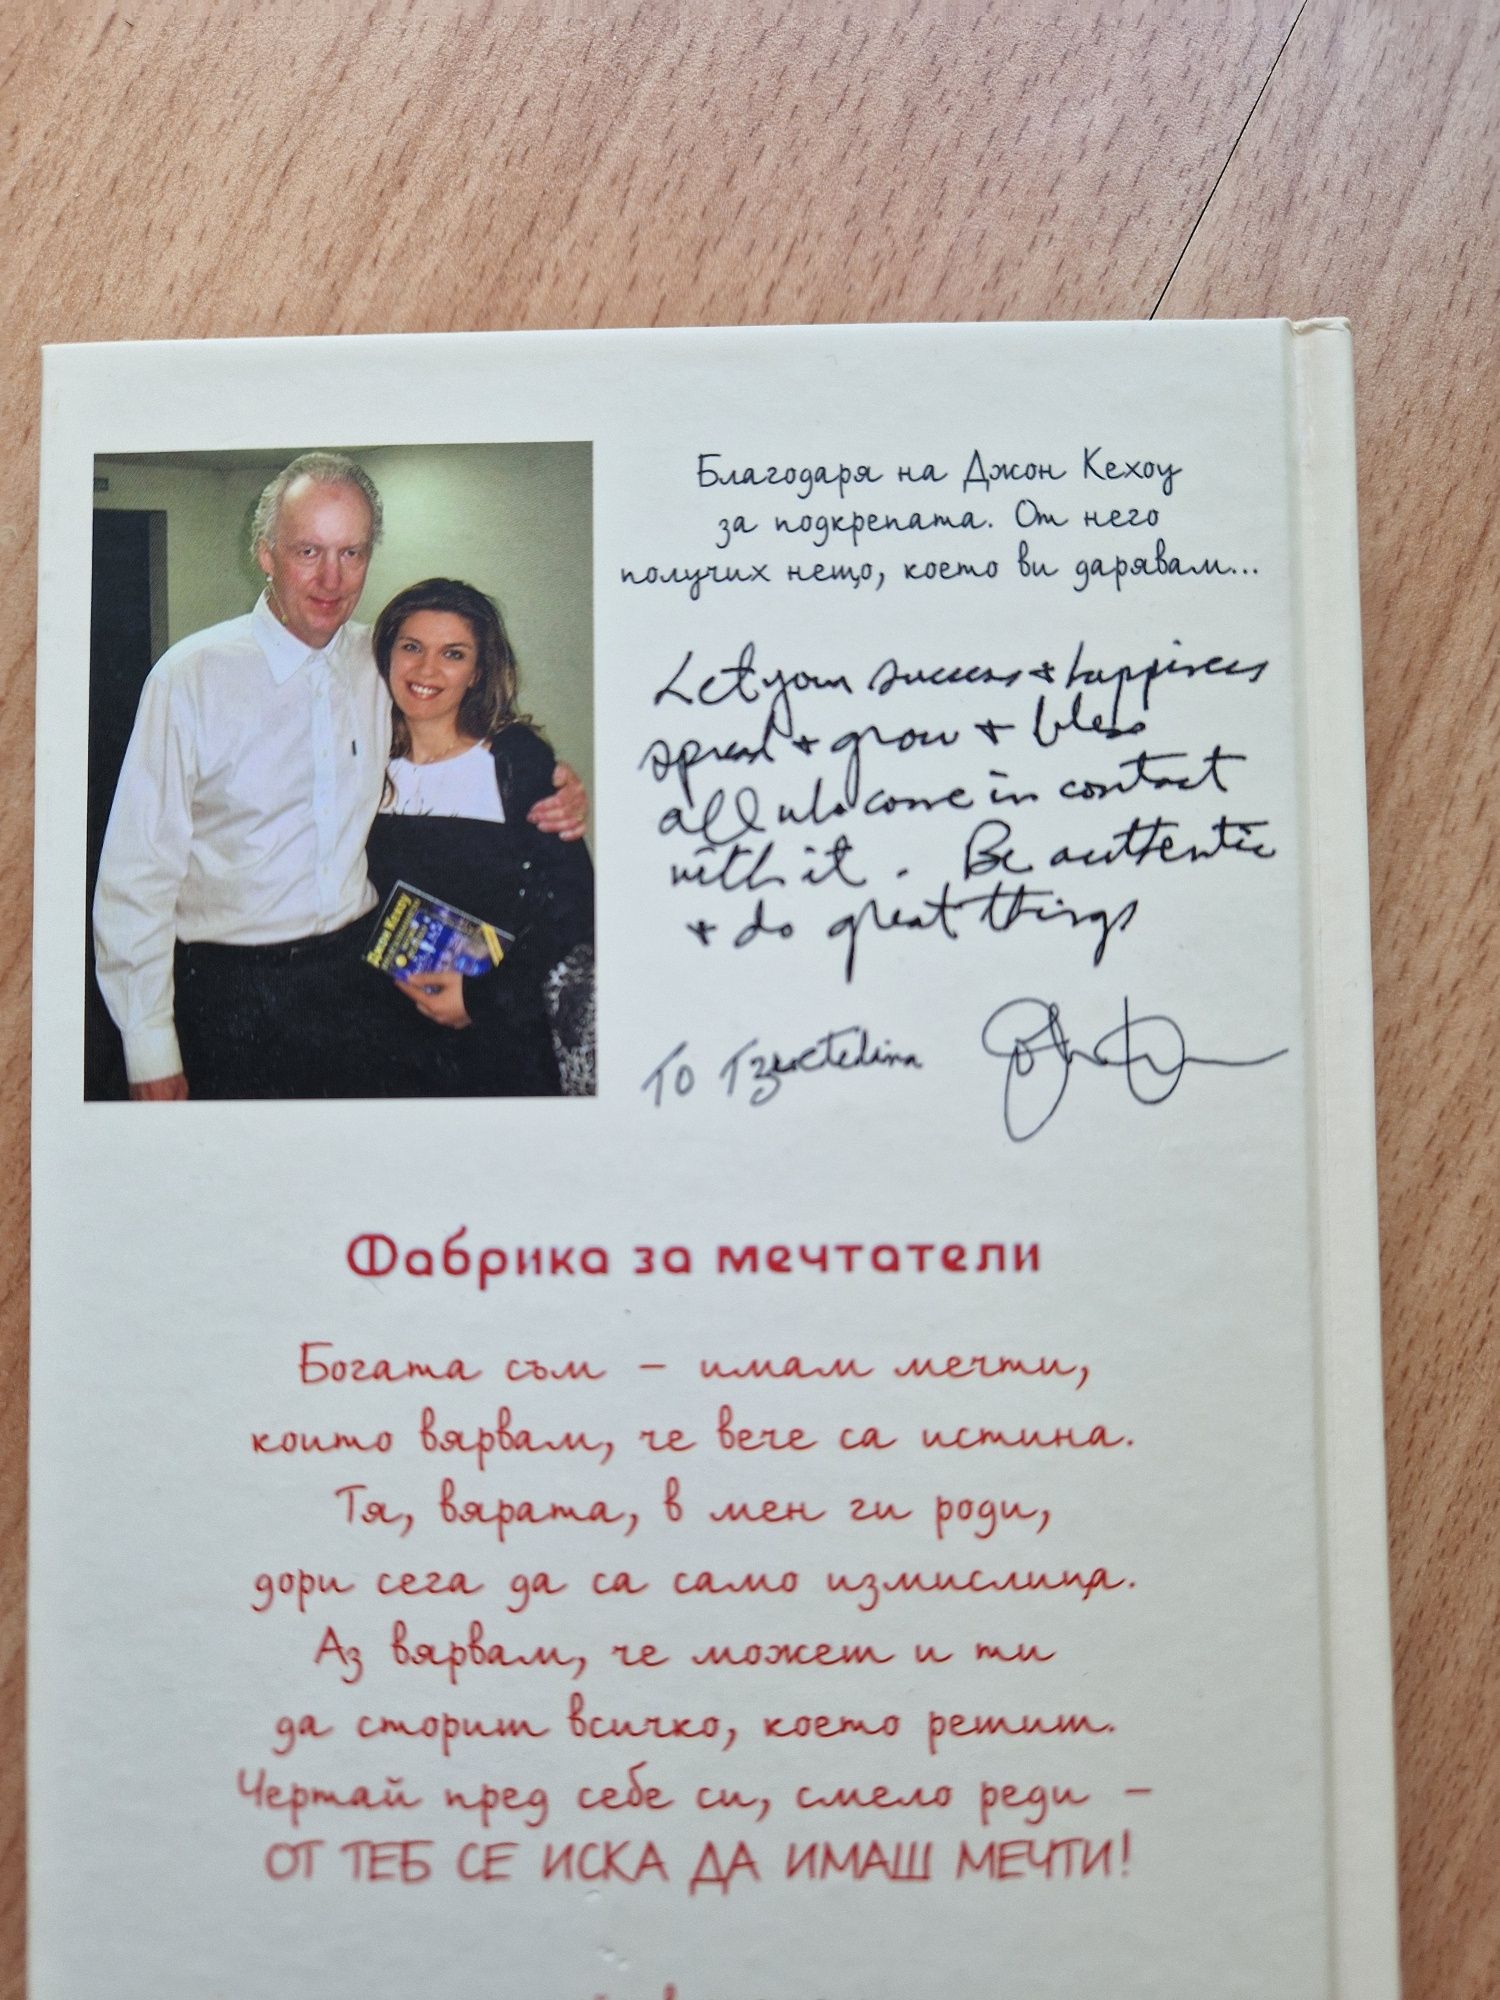 Благодаря на Джон Кехоу
за подкрепата. От него
получих нещо, което ви дарявам...
Let your success + happiness
spread + grow + bless
all who come in contact
with it. Be authentic
+ do great things
TO Tzvetelina
Джон Кехоу
Фабрика за мечтатели
Богата съм – имам мечти,
които вярвам, че вече са истина.
Тя, вярата, в мен ги роди,
дори сега да са само измислица.
Аз вярвам, че можеш и ти
да сториш всичко, което решиш.
Чертай пред себе си, смело реди –
ОТ ТЕБ СЕ ИСКА ДА ИМАШ МЕЧТИ!